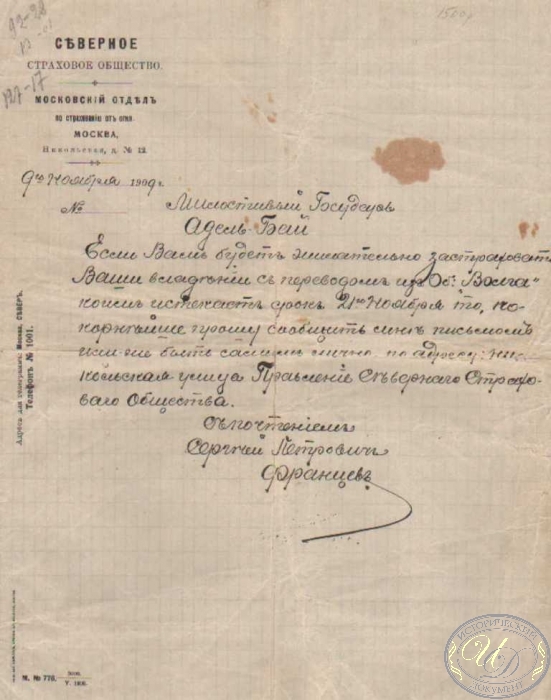 92-28
127-17
СѢВЕРНОЕ
СТРАХОВОЕ ОБЩЕСТВО.
МОСКОВСКІЙ ОТДѢЛЪ
по страхованію отъ огня.
МОСКВА,
Никольская, д. № 12.
9го Ноября 1909 г.
№
Милостивый Государь
Адель-Бай
Если Вамъ будетъ желательно застраховать
Ваши владѣнии съ переводомъ изъ Об. "Волга"
коимъ истекаетъ срокъ 21го Ноября то, по-
корнѣйше прошу сообщить письмомъ
или-же быть самимъ лично по адресу: Ни-
кольская улица Правленіе Сѣвернаго Страхо-
ваго Общества.
Съ почтеніемъ
Сергѣй Петровичъ
Францевъ
Адресъ для телеграммъ: Москва, СѢВЕРЪ.
Телефонъ № 1001.
М. № 776.
V. 1908.
ИСТОРИЧЕСКИЙ
ИД
ДОКУМЕНТ